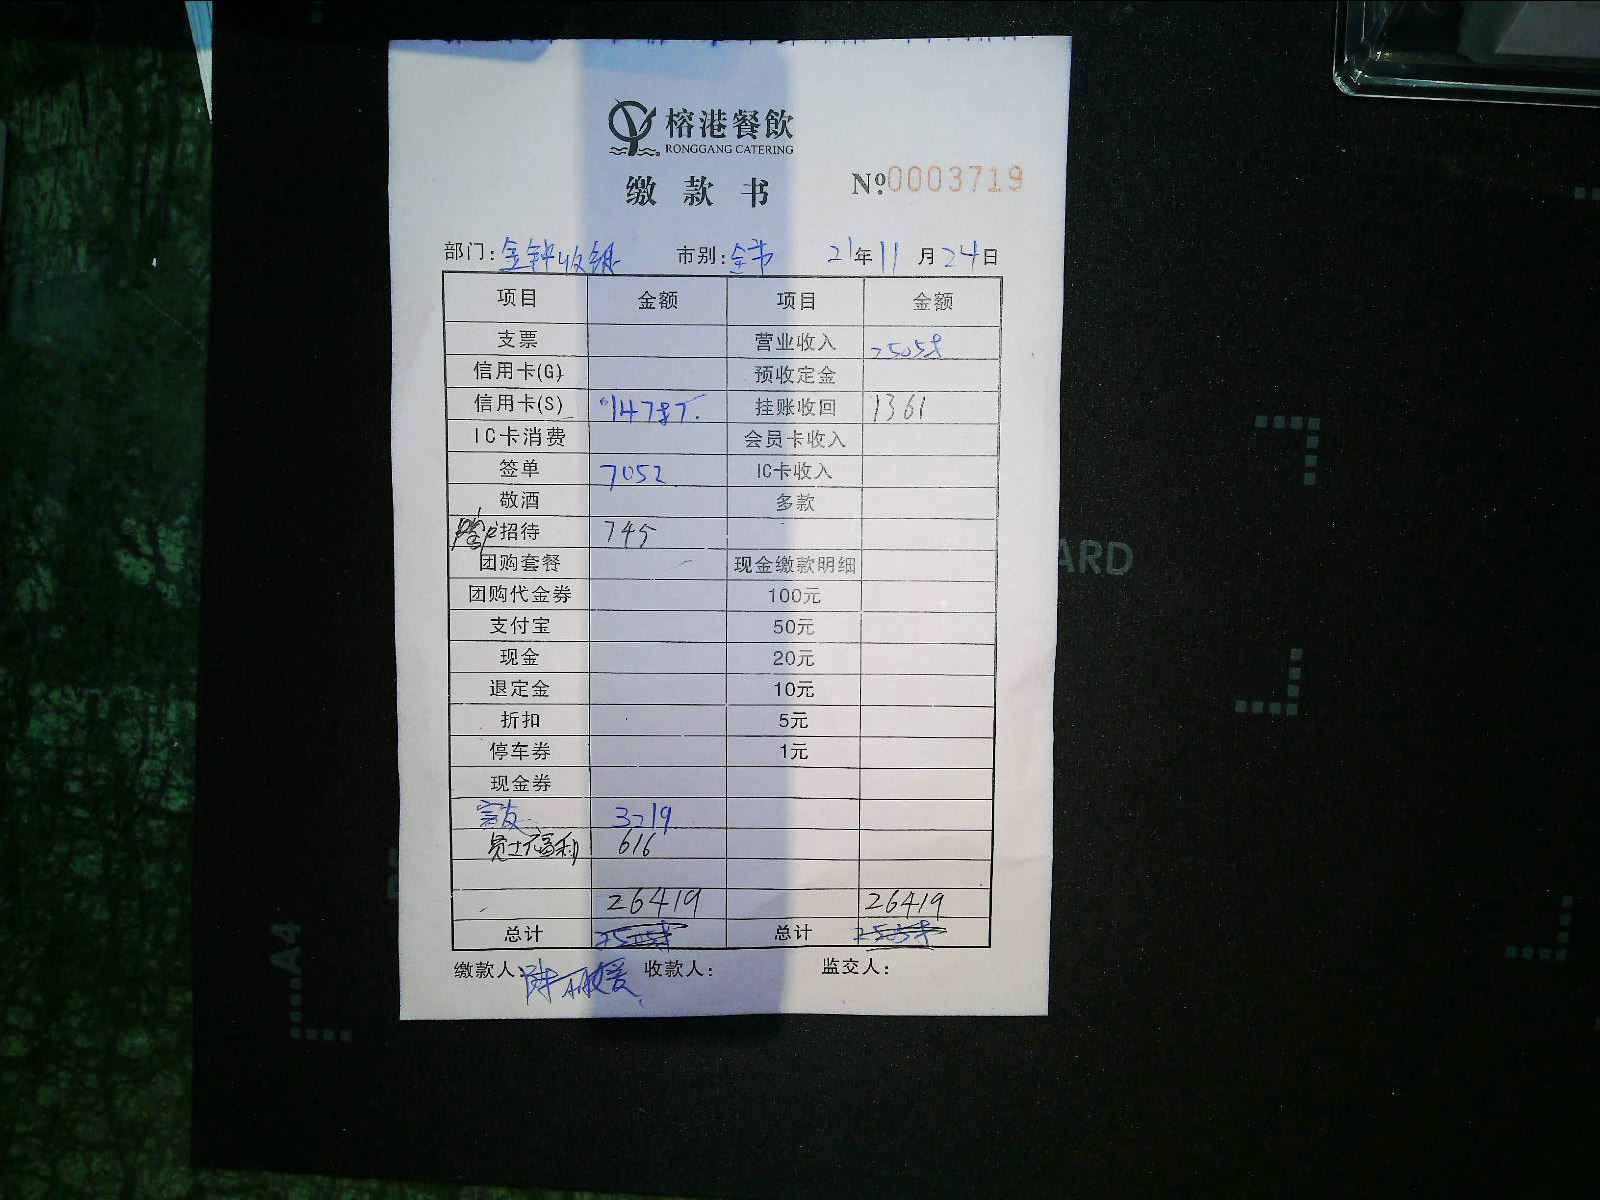 榕港餐飲
RONGGANG CATERING
缴款书
№0003719
部门:金钟收银 市别:全市 21年11月24日
项目 金额 项目 金额
支票 营业收入 25058
信用卡(G) 预收定金
信用卡(S) 14787. 挂账收回 1361
IC卡消费 会员卡收入
签单 7052 IC卡收入
敬酒 多款
招待 745
团购套餐 现金缴款明细
团购代金券 100元
支付宝 50元
现金 20元
退定金 10元
折扣 5元
停车券 1元
现金券
3219
员工福利 616
26419 26419
总计 25058 总计 25058
缴款人: 收款人: 监交人:
ARD
A4